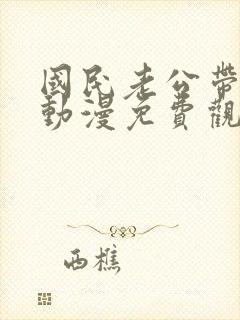 國民老公帶
動漫免費觀
西樵